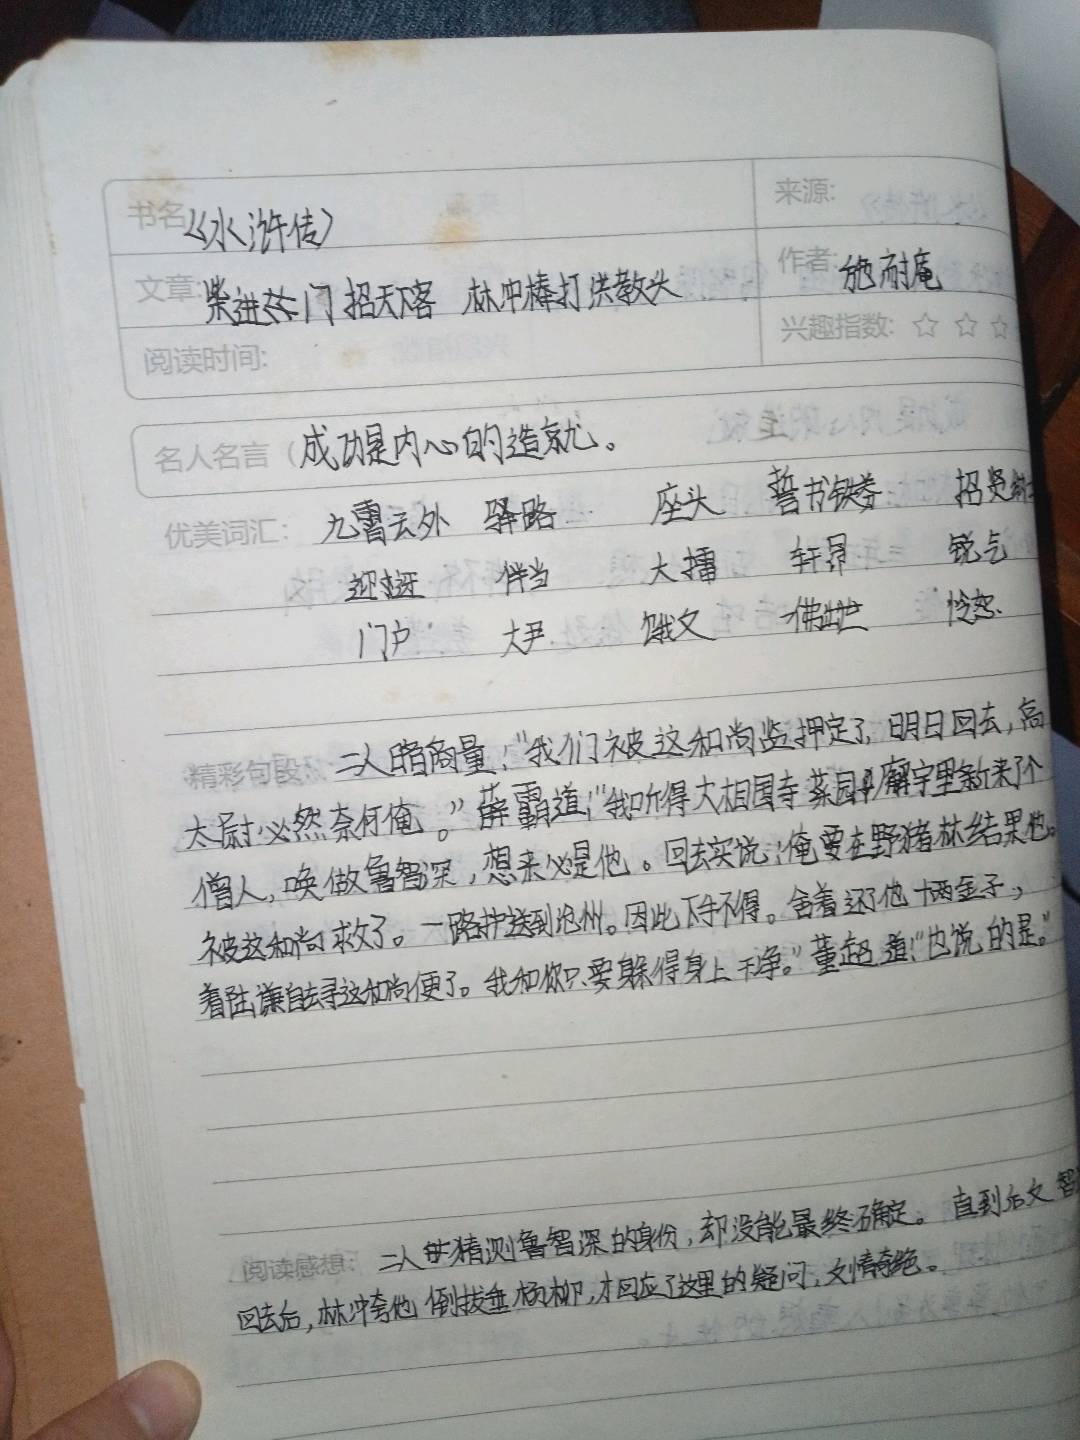 书名 《水浒传》
来源:
文章: 柴进 门招天下客 林冲棒打洪教头
作者: 施耐庵
阅读时间:
兴趣指数: ☆ ☆ ☆
名人名言( 成功是内心的造就。
优美词汇: 九霄云外 驿路 座头 誓书铁券 招贤
迎迓 伴当 大擂 轩昂 锐气
门户 大尹 佛出世
精彩句段: 二人暗商量:“我们被这和尚监押定了,明日回去,高
太尉必然奈何俺。”薛霸道:“我听得大相国寺菜园 廨宇里新来了个
僧人,唤做鲁智深,想来必是他。回去实说:俺要在野猪林结果他。
被这和尚救了。一路护送到沧州。因此下手不得。舍着还了他十两金子,
着陆谦自去寻这和尚便了。我和你只要躲得身上干净。”董超道:“也说的是。”
阅读感想: 二人 猜测鲁智深的身份,却没能最终确定。直到后文 智
回去后,林冲夸他倒拔垂杨柳,才回应了这里的疑问,文情奇绝。